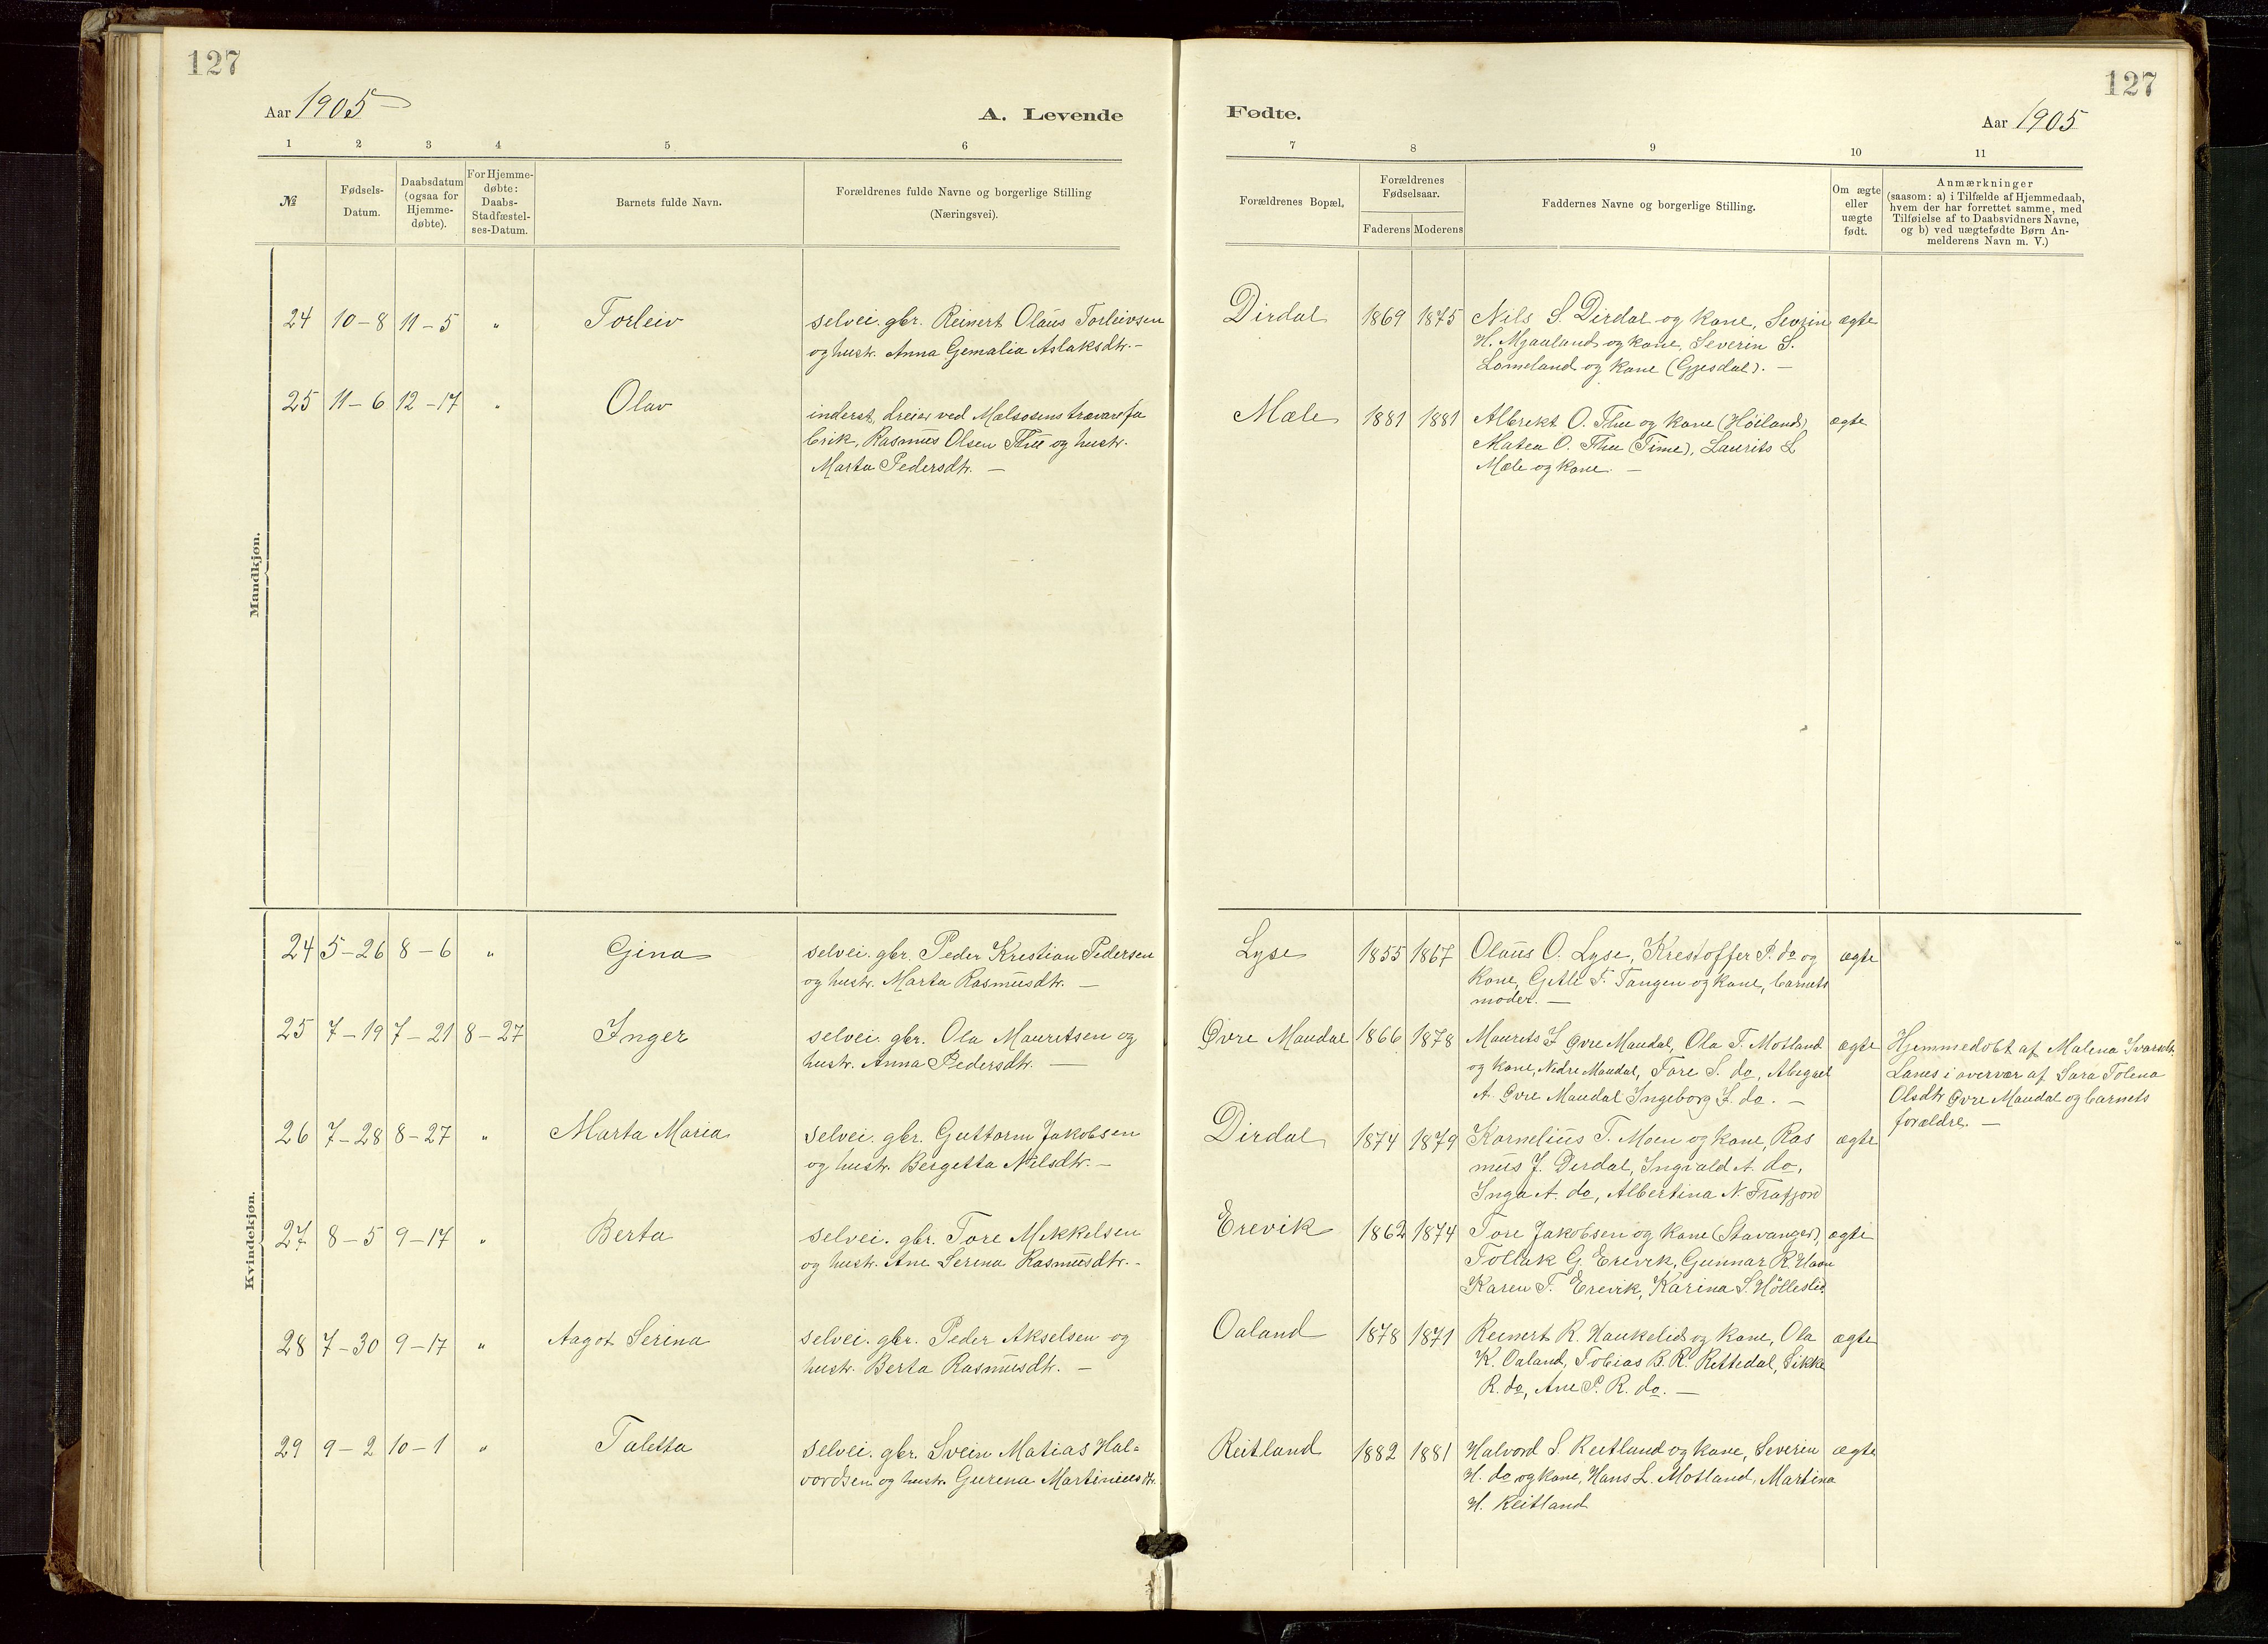 127
127
Aar 1905
A. Levende
Fødte.
Aar 1905
1 2 3 4 5 6 7 8 9 10 11
№
Fødsels-
Datum.
Daabsdatum
(ogsaa for
Hjemme-
døbte).
For Hjemme-
døbte:
Daabs-
Stadfæstel-
ses-Datum.
Barnets fulde Navn.
Forældrenes fulde Navne og borgerlige Stilling
(Næringsvei).
Forældrenes Bopæl.
Forældrenes
Fødselsaar.
Faderens Moderens
Faddernes Navne og borgerlige Stilling.
Om ægte
eller
uægte
født.
Anmærkninger
(saasom: a) i Tilfælde af Hjemmedaab,
hvem der har forrettet samme, med
Tilføielse af to Daabsvidners Navne,
og b) ved uægtefødte Børn An-
melderens Navn m. V.)
Mandkjøn.
24 10-8 11-5 " Torleiv
selvei. gbr. Reinert Olaus Torleivsen
og hustr. Anna Gemalia Aslaksdtr. -
Dirdal 1869 1875
Nils S. Dirdal og kone, Severin
H. Mjaaland og kone, Severin S.
Lomeland og kone (Gjesdal). -
ægte
25 11-6 12-17 " Olav
inderst, dreier ved Mælsosens trævarefa
brik, Rasmus Olsen Thu og hustr.
Marta Pedersdtr. -
Mæle 1881 1881
Albrekt O. Thu og kone (Høiland),
Matea O. Thu (Time), Laurits L
Mæle og kone. -
ægte
Kvindekjøn.
24 5-26 8-6 " Gina
selvei. gbr. Peder Kristian Pedersen
og hustr. Marta Rasmusdtr. -
Lyse 1855 1867
Olaus O. Lyse, Krestoffer P. do og
kone, Getle T. Tangen og kone, barnets
moder. -
ægte
25 7-19 7-21 8-27 Inger
selvei. gbr. Ola Mauritsen og
hustr. Anna Pedersdtr. -
Øvre Maudal 1866 1878
Maurits I Øvre Maudal, Ola T. Motland
og kone, Nedre Maudal, Tore S. do, Abigael
A. Øvre Maudal Ingeborg I. do. -
ægte
Hjemmedøbt af Malena Ivarsdtr.
Lanes i overvær af Sara Tolena
Olsdtr Øvre Maudal og barnets
forældre. -
26 7-28 8-27 " Marta Maria
selvei. gbr. Guttorm Jakobsen
og hustr. Bergetta Nilsdtr. -
Dirdal 1874 1879
Kornelius T. Moen og kone, Ras
mus J. Dirdal, Ingvald A. do,
Inga A. do, Albertina N. Frafjord
ægte
27 8-5 9-17 " Berta
selvei. gbr. Tore Mikkelsen
og hustr. Ane Serina Rasmusdtr. -
Erevik 1862 1874
Tore Jakobsen og kone (Stavanger),
Tollak G. Erevik, Gunnar R. Haan
Karen T. Erevik, Karina S. Høllesli.
ægte
28 7-30 9-17 " Aagot Serina
selvei. gbr. Peder Akselsen og
hustr. Berta Rasmusdtr. -
Oaland 1878 1871
Reinert R. Haukelid og kone, Ola
K. Oaland, Tobias B. R. Rettedal, Sikke
R. do, Ane P. R. do. -
ægte
29 9-2 10-1 " Taletta
selvei. gbr. Svein Matias Hal-
vordsen og hustr. Gurena Martiniusdtr.
Reitland 1882 1881
Halvord S. Reitland og kone, Severin
H. do og kone, Hans L. Motland, Martina
H. Reitland
ægte